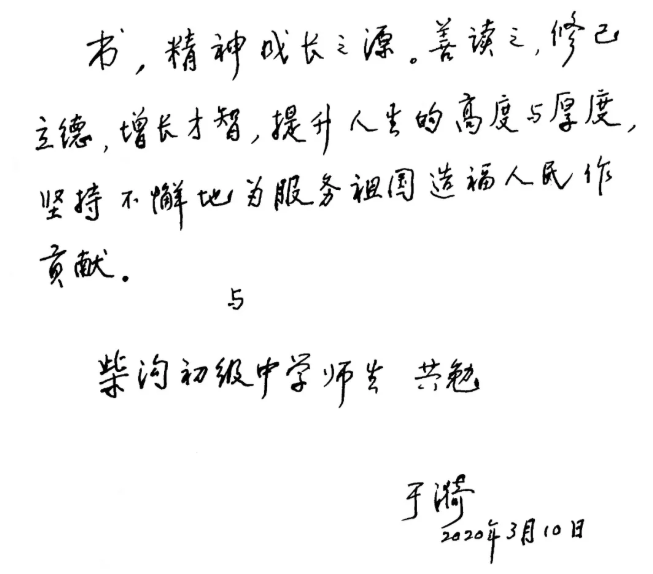 书，精神成长之源。善读之，修己
立德，增长才智，提升人生的高度与厚度，
坚持不懈地为服务祖国造福人民作
贡献。
与
柴沟初级中学师生 共勉
于漪
2020年3月10日